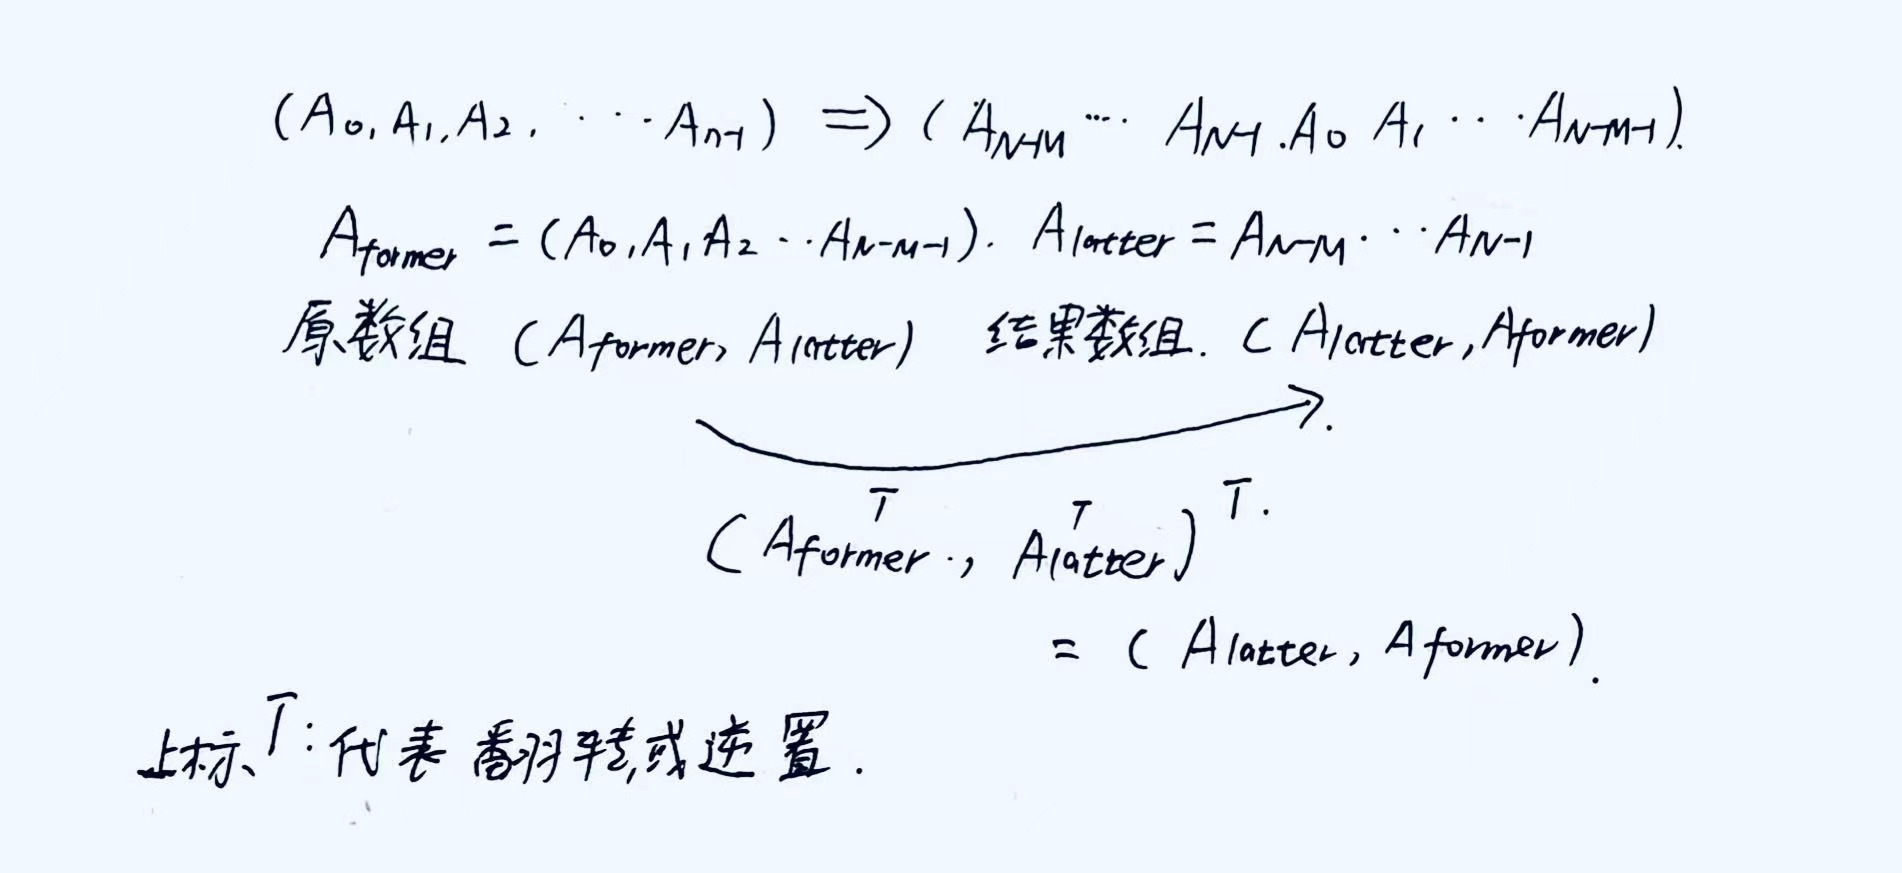 (A₀, A₁, A₂, ····· Aₙ₋₁) ⇒ (A_{N-M} ···· A_{N-1}. A₀ A₁ ··· A_{N-M-1}).
A_{former} = (A₀, A₁ A₂ ··· A_{N-M-1}). A_{latter} = A_{N-M} ··· A_{N-1}
原数组 (A_{former}, A_{latter}) 结果数组. (A_{latter}, A_{former})
(A_{former}^T ., A_{latter}^T)^T.
= (A_{latter}, A_{former}).
上标 T: 代表翻转或逆置.